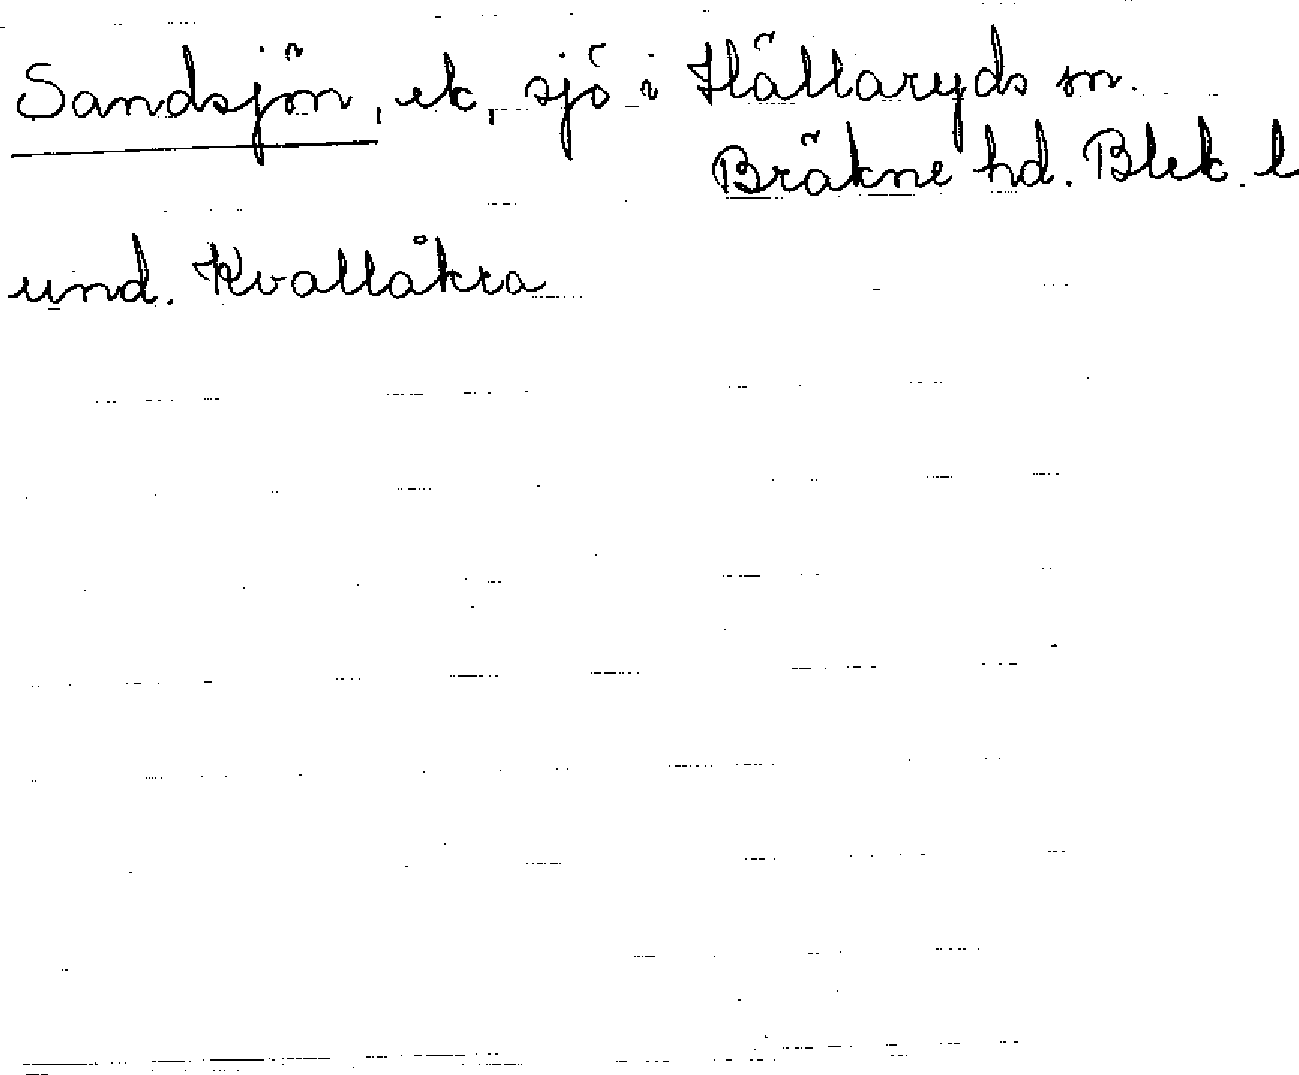 Sandsjön, ek, sjö i Hällaryds sn.
Bräkne hd. Blek. l
und. Kvallåkra